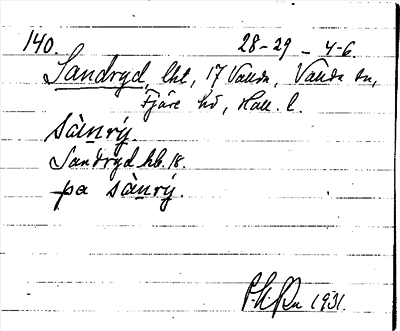 140. 28-29 - 4-6.
Sandryd, lht, 17 Valda, Valda sn,
Fjäre hd, Hall. l.
sànrý.
Sandryd hb. 18.
pa sànrý.
1931.